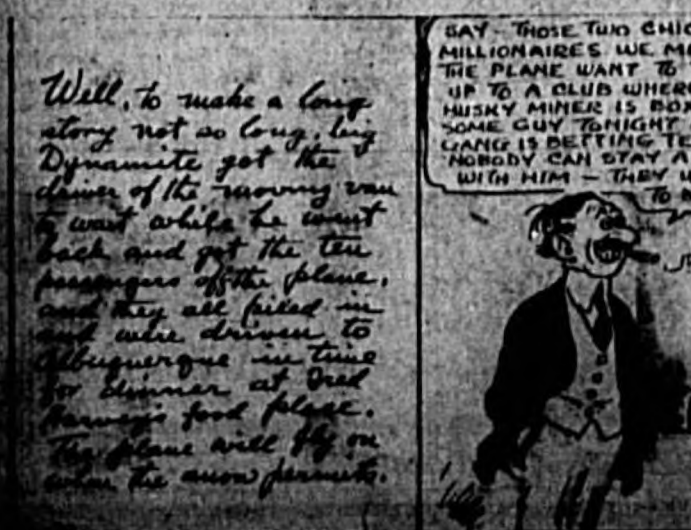 Well, to make a long
story not so long, big
Dynamite got the
driver of the moving van
to wait while he went
back and got the ten
passengers off the plane,
and they all piled in
and were driven to
Albuquerque in time
for dinner at Fred
Harvey's food place.
The plane will fly on
when the snow permits.
SAY - THOSE TWO CHIC
MILLIONAIRES WE M
THE PLANE WANT TO
UP TO A CLUB WHER
HUSKY MINER IS BOX
SOME GUY TONIGHT
GANG IS BETTING TE
NOBODY CAN STAY A
WITH HIM - THEY W
TO